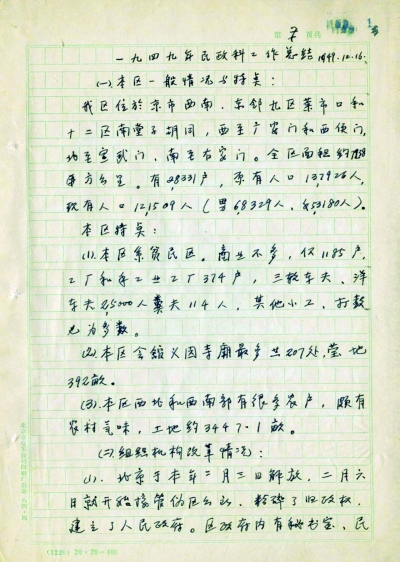 第7页共
一九四九年民政科工作总结 1949.12.16.
(一)本区一般情况与特点:
我区位于京市西南,东邻九区菜市口和
十二区南堂子胡同,西至广安门和西便门,
北至宣武门,南至右安门。全区面积约
平方公里。有28331户,原有人口137926人,
现有人口121509人(男68329人,女53180人)。
本区特点:
(1).本区系贫民区。商业不多,仅1185户,
工厂和手工业工厂374户,三轮车夫、洋
车夫25000人粪夫114人,其他小工、打鼓
尤为多数。
(2).本区会馆义园寺庙最多共207处,茔地
392亩。
(3).本区西北和西南部有很多农户,颇有
农村气味,土地约3447.1亩。
(二)组织机构改革情况:
(1).北京于本年二月三日解放,二月六
日就开始接管伪区公所,粉碎了旧政权,
建立了人民政府。区政府内有秘书室、民
(1226) 20×20=400